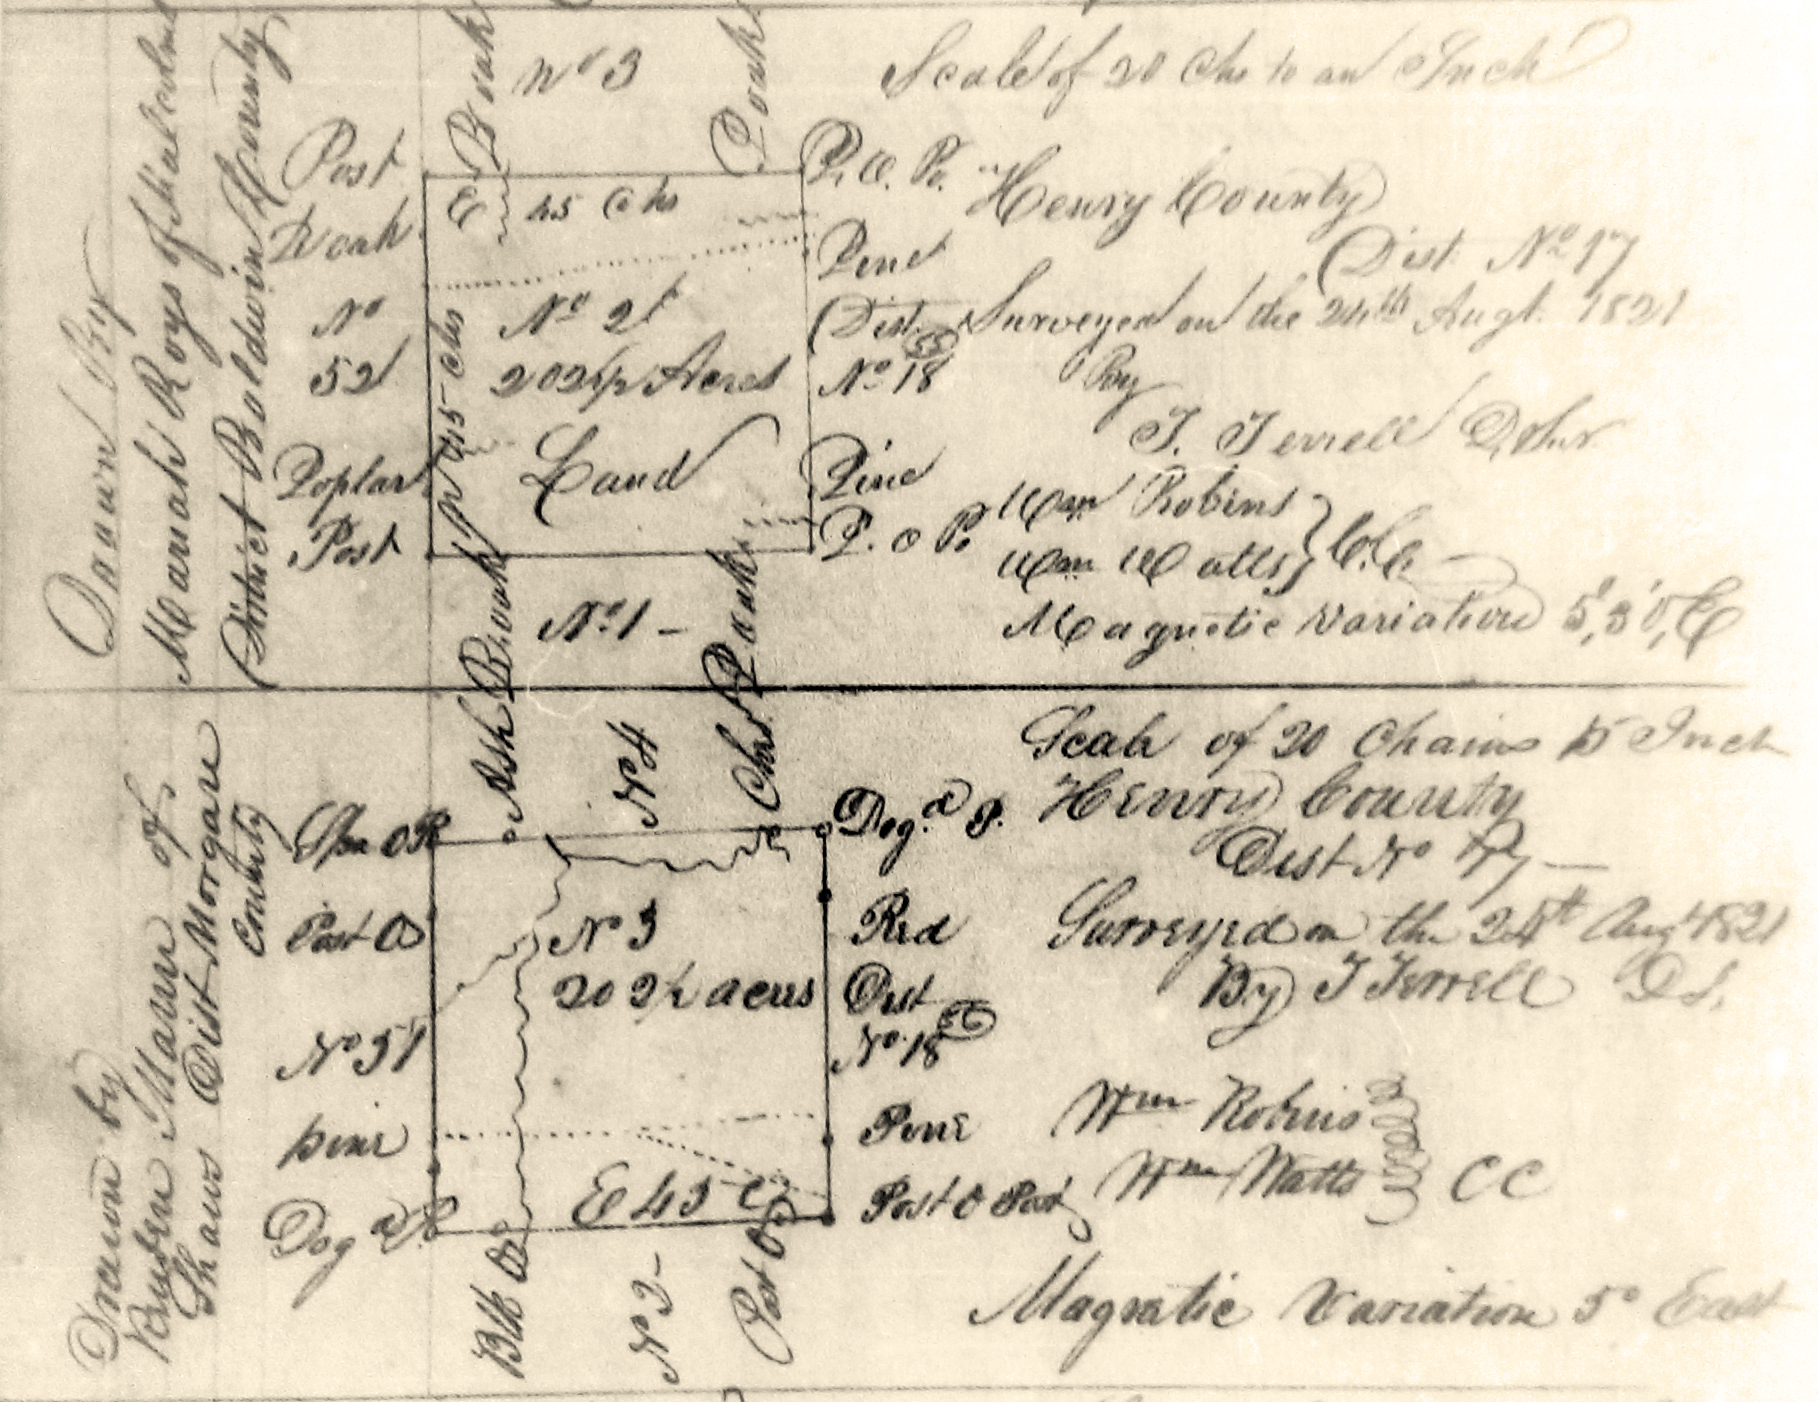 Drawn By
Mariah Roys of Malcolms
District Baldwin County
Nº 3
B oak
P oak
Post
R oak
Nº
52
Poplar
Post
E 45 Chs
N 45 Chs
Nº 2
202 1/2 Acres
Land
P. O. Po.
Pine
Dist.
Nº 18
55
Pine
P. O Po
Ash B oak
Nº 1 -
Ches. P oak
Scale of 20 Chs to an Inch
Henry County
Dist. Nº 17
Surveyed on the 24th Augt. 1821
By
T. Terrell D. Sur
Wm Robins
Wm Watts } C. C. -
Magnetic Variation 5° 30' E
Drawn by
Reuben Mann of
Shaws Dist Morgan
County
Ash
Nº 4
Ches.
Spa O P
Post O
Nº 51
pine
Dog wd P
N 3
202 1/2 acres
E 45 C
Dog. d P.
Red
Dist
Nº 18
56
Pine
Post O Post
Blk O
N 2 -
Post O
Scale of 20 Chains to Inch
Henry County
Dist Nº 17 -
Surveyed on the 24th Augt 1821
By T Terrell D S.
Wm Robins
Wm Watts CC
Magnetic Variation 5° East